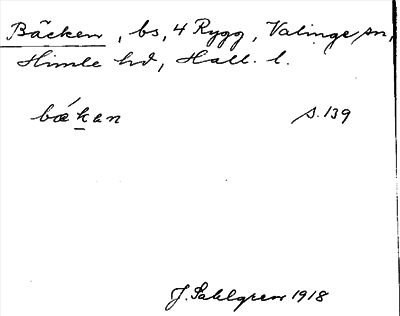 Bäcken, bs, 4 Rygg, Valinge sn,
Himle hd, Hall. l.
bǽkan s. 139
J. Sahlgren 1918